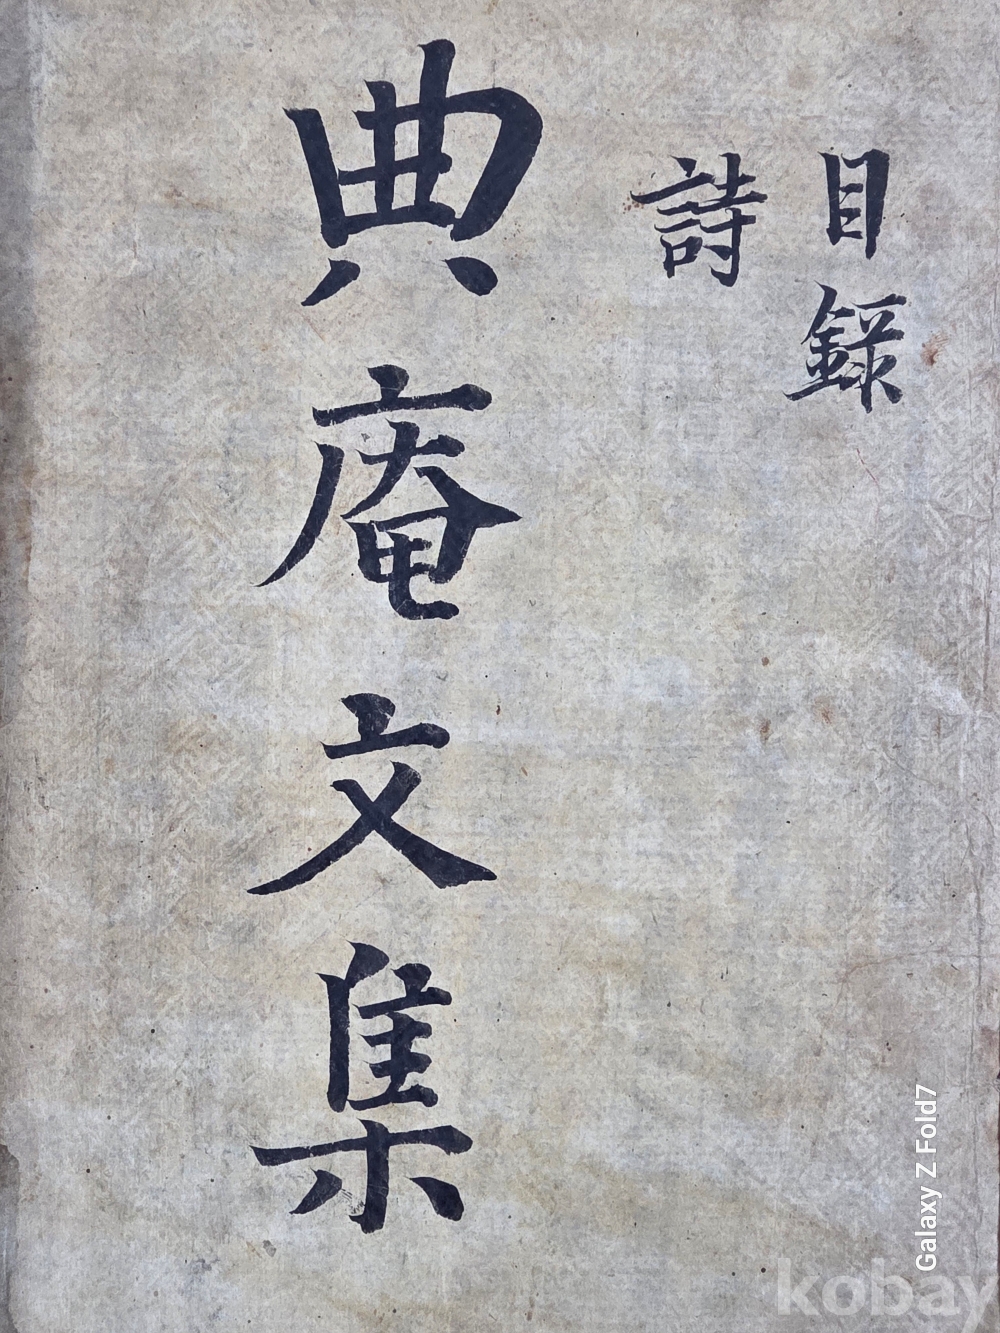 目錄
詩
典庵文集
Galaxy Z Fold7
kobay